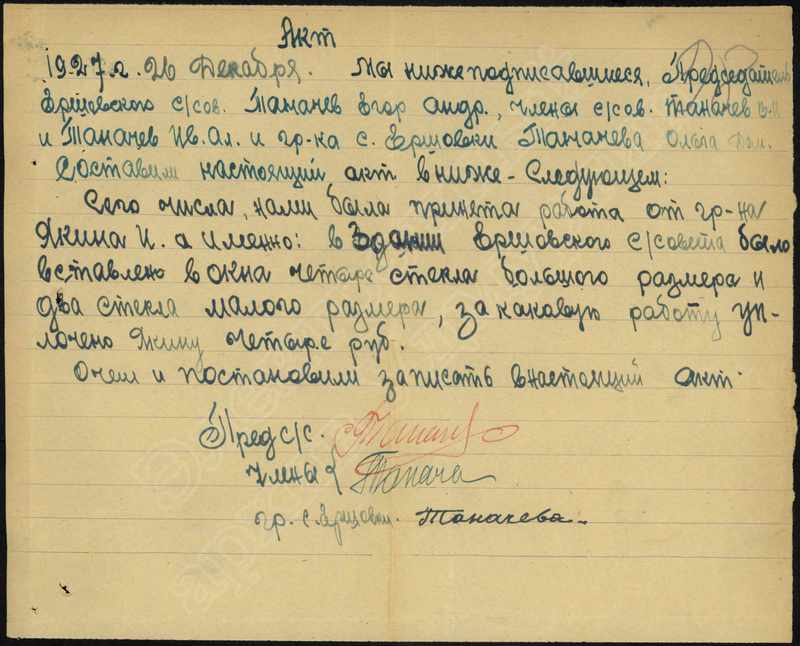 Акт
1927 г. 26 Декабря. Мы нижеподписавшиеся, Председатель
Ершовского с/сов. Таначев Егор Андр., члены с/сов. Таначев
и Таначев Ив. Ал. и гр-ка с. Ершовки Таначева Ольга
Составили настоящий акт в ниже-Следующем:
Сего числа, нами была принета работа от гр-на
Якина И. а именно: в Здании Ершовского с/совета было
вставлено в окна четыре стекла большого размера и
два стекла малого размера, за каковую работу уп-
лочено Якину четыре руб.
Очем и постановили записать в настоящий акт.
Пред с/с.
Члены Танача
гр. с. Ершовки. Таначева